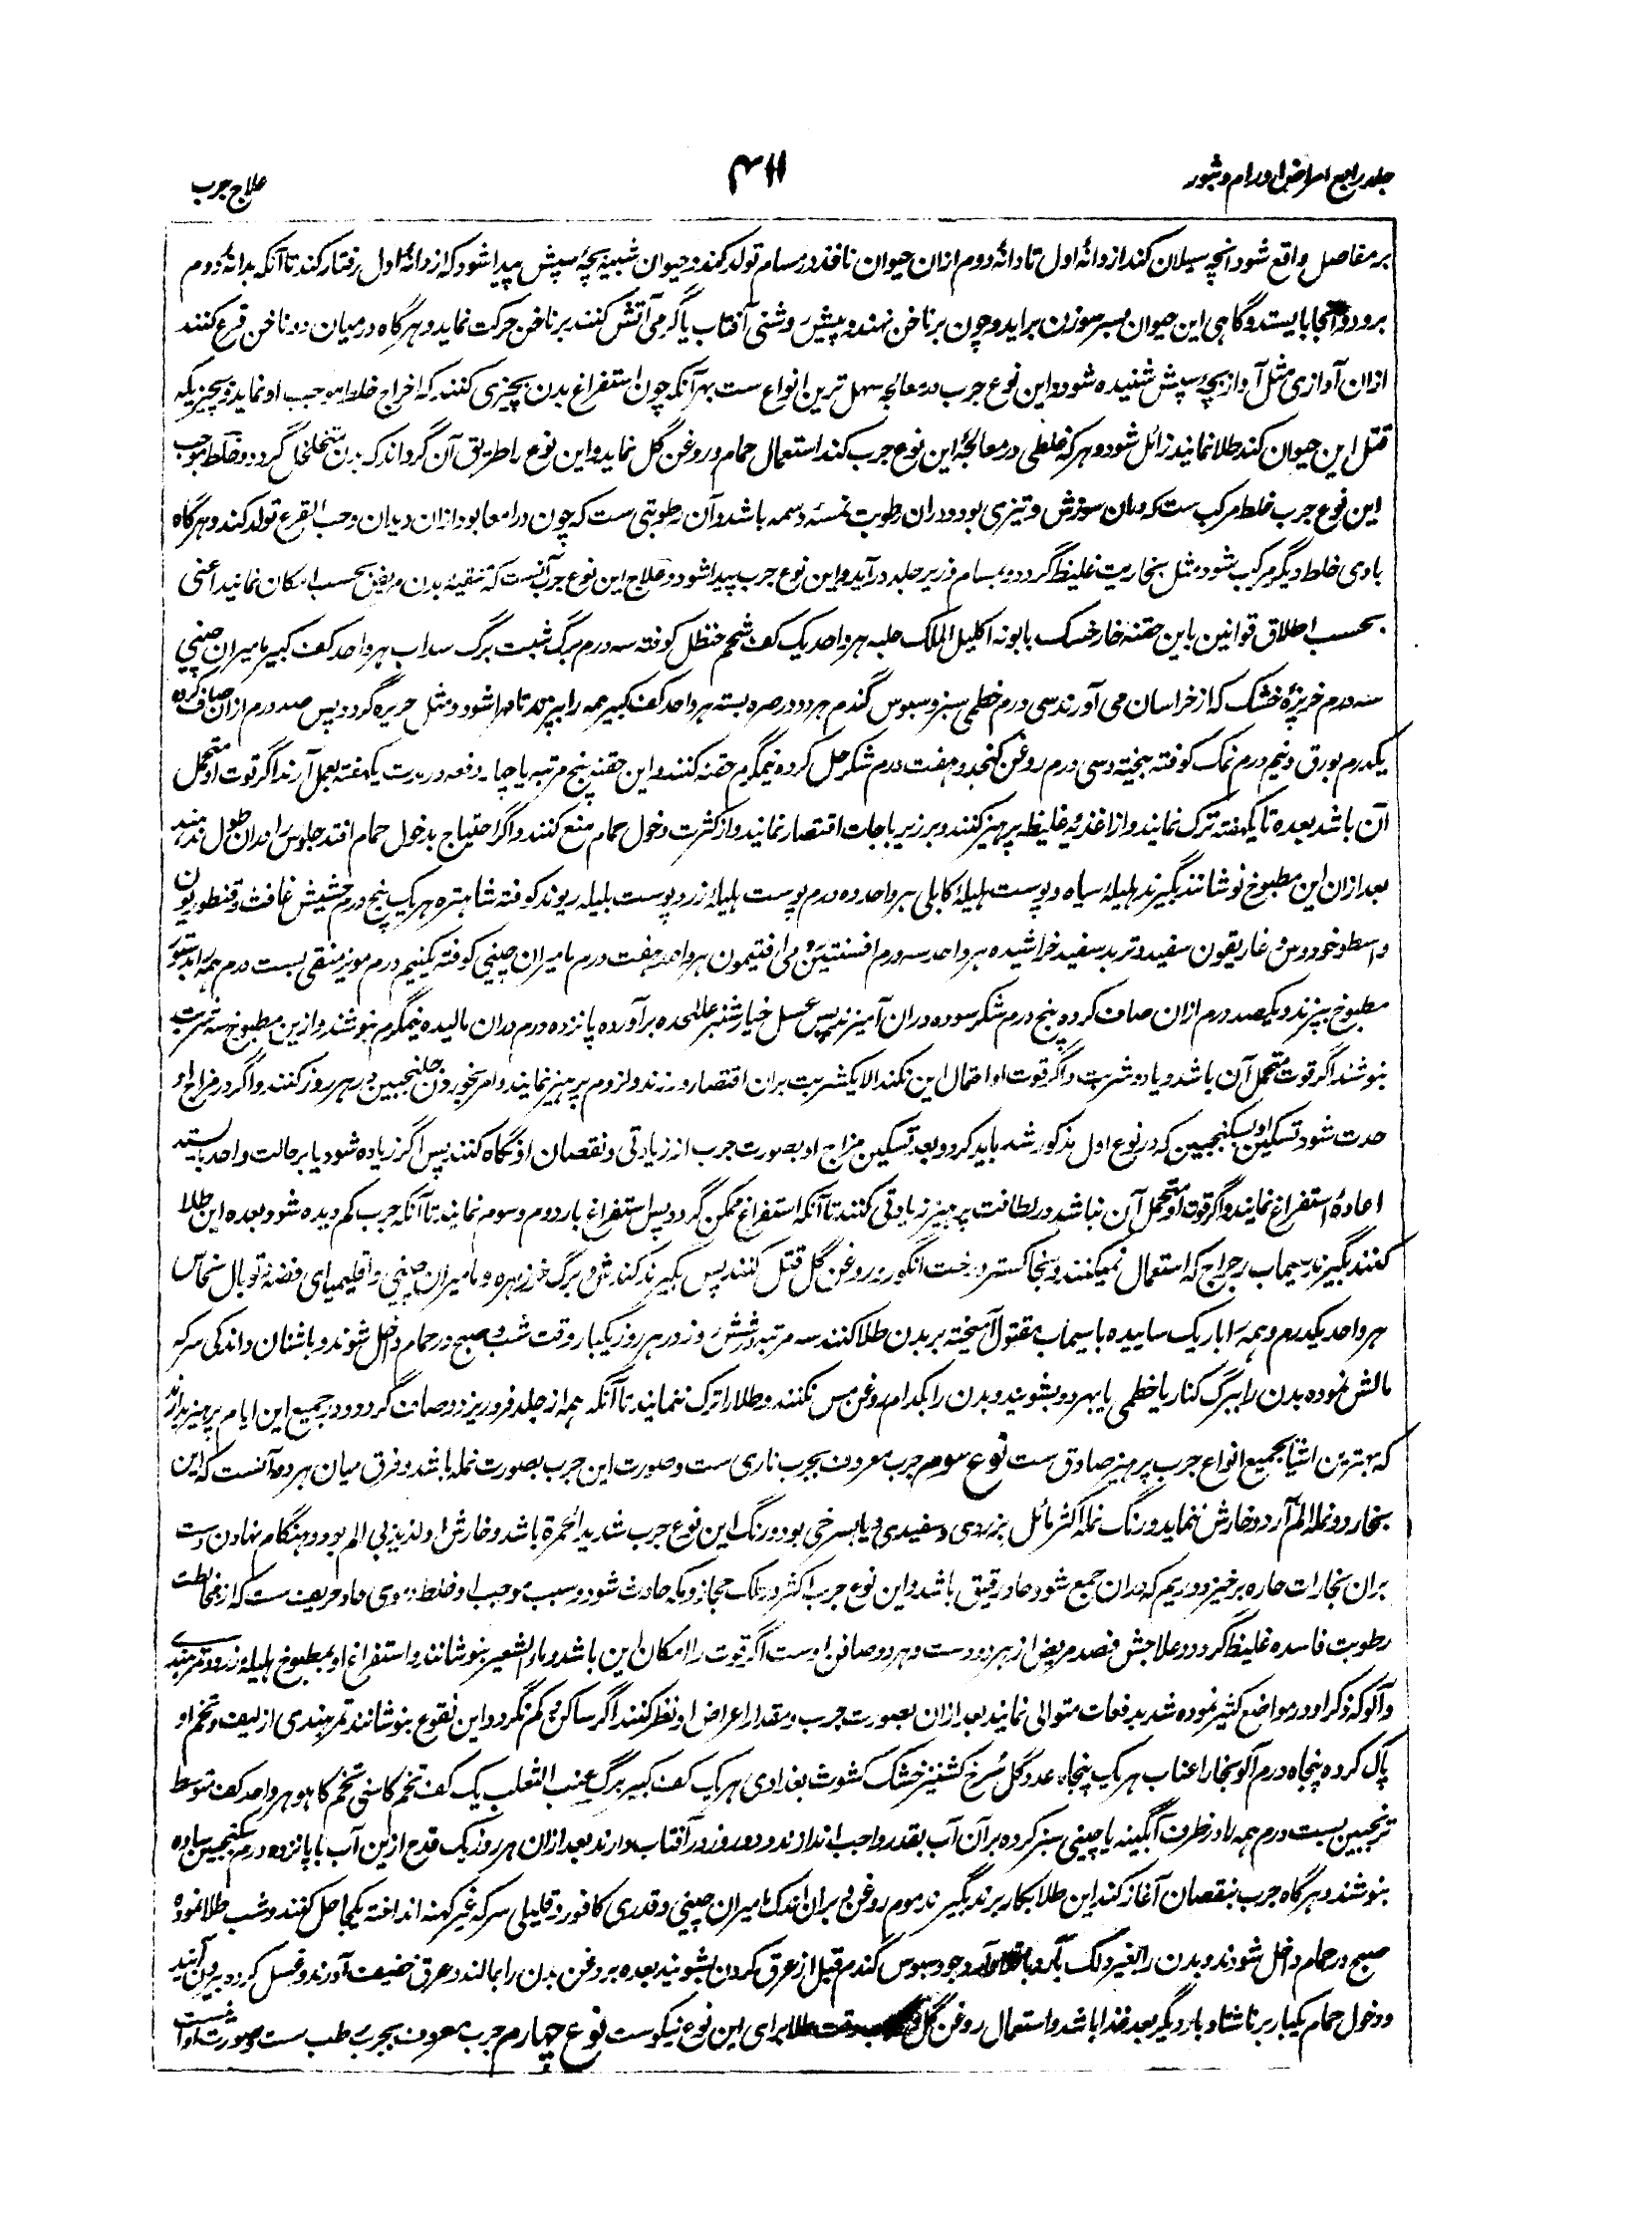 جلد رابع امراض اورام و بثور
۴۱۱
علاج جرب
بر مفاصل واقع شود انچه سیلان کند از دانۀ اول تا دانۀ دوم ازان حیوان نافذ در مسام تولد کند و حیوان شبیه بچۀ سپش پیدا شود که از دانۀ اول رفتار کند تا آنکه بدانۀ دوم
برود و انجا بایستد و گاهی این حیوان بسر سوزن براید و چون بر ناخن نهند و پیش روشنی آفتاب یا گرمی آتش کنند بر ناخن حرکت نماید و هرگاه درمیان دو ناخن قرع کنند
ازان آوازی مثل آواز بچۀ سپش شنیده شود و این نوع جرب در معالجه سهل ترین انواع ست بهر آنکه چون استفراغ بدن بچیزی کنند که اخراج خلط موجب او نماید و بچیزیکه
قتل این حیوان کند طلا نمایند زائل شود و هر که غلطی در معالجۀ این نوع جرب کند استعمال حمام و روغن گل نماید و این نوع را طریق آن گرداند که بدن متخلخل گردد و خلط موجب
این نوع جرب خلط مرکب ست که دران سوزش و تیزی بود و دران رطوبت دسمه باشد و آن رطوبتی ست که چون در امعا بود ازان دیدان و حب القرع تولد کند و هرگاه
بادی خلط دیگر مرکب شود مثل بخاریت غلیظ گردد و بمسام زیر جلد در آید و این نوع جرب پیدا شود و علاج این نوع جرب آنست که تنقیه بدن مریض بحسب امکان نمایند اعنی
بحسب اطلاق قوانین باین حقنه خارخسک بابونه اکلیل الملک حلبه هر واحد یک کف شحم حنظل کوفته سه درم برگ شبت برگ سداب هر واحد کف کبیر مامیران چینی
سه درم خرپزۀ خشک که از خراسان می آورند سی درم خطمی سبز و سبوس گندم هر دو در صره بسته هر واحد کف کبیر همه را بپزند تا مهرا شود و مثل حریره گردد پس صد درم ازان صاف کرده
یکدرم بورق و نیم درم نمک کوفته بیخته و سی درم روغن کنجد و هفت درم شکر حل کرده نیمگرم حقنه کنند و این حقنه پنج مرتبه یا چار دفعه در مدت یکهفته بعمل آرند اگر قوت او متحمل
آن باشد بعده تا یکهفته ترک نمایند و از اغذیۀ غلیظه پرهیز کنند و بر زیرباجات اقتصار نمایند و از کثرت دخول حمام منع کنند و اگر احتیاج بدخول حمام افتد جلوس را دران طول ندهند
بعد ازان این مطبوخ نوشانند بگیرند هلیلۀ سیاه و پوست هلیلۀ کابلی هر واحد ده درم پوست هلیلۀ زرد پوست بلیله ریوند کوفته شاهتره هر یک پنج درم حشیش غافث و قنطوریون
و اسطوخودوس و غاریقون سفید و تربد سفید خراشیده هر واحد سه درم افسنتین رومی افتیمون هر واحد هفت درم مامیران چینی کوفته یکنیم درم مویز منقی بست درم همه را بدستور
مطبوخ بپزند و یکصد درم ازان صاف کرده پنج درم شکر سوده دران آمیزند پس عسل خیارشنبر علٰحده برآورده پانزده درم دران مالیده نیمگرم بنوشند و ازین مطبوخ سه شربت
بنوشند اگر قوت متحمل آن باشد و یا دو شربت و اگر قوت او احتمال این نکند الا یکشربت بران اقتصار ورزند و لزوم پرهیز نمایند و امر بخوردن جلنجبین در هر روز کنند و اگر در مزاج او
حدت شود تسکین او بسکنجبین که در نوع اول مذکور شد باید کرد و بعد تسکین مزاج او بصورت جرب از زیادتی و نقصان او نگاه کنند پس اگر زیاده شود یا بر حالت واحد باشد
اعادۀ استفراغ نمایند و اگر قوت او متحمل آن نباشد در لطافت پرهیز زیادتی کنند تا آنکه استفراغ ممکن گردد پس استفراغ بار دوم و سوم نمایند تا آنکه جرب کم دیده شود بعده این طلا
کنند بگیرند سیماب رجراج که استعمال نمیکنند و بخاکستر درخت انگور و روغن گل قتل کنند پس بگیرند کندش و برگ خرزهره و مامیران چینی و اقلیمیای فضه و توبال نحاس
هر واحد یکدرم و همه را باریک ساییده با سیماب مقتول آمیخته بر بدن طلا کنند سه مرتبه در شش روز در هر روز یکبار وقت شب و صبح در حمام داخل شوند و باشنان و اندکی سرکه
مالش نموده بدن را ببرگ کنار یا خطمی یا بهر دو بشویند و بدن را بکدام روغن مس نکنند و طلا را ترک ننمایند تا آنکه همه از جلد فرو ریزد و صاف گردد و در جمیع این ایام پرهیز دارند
که بهترین اشیا بجمیع انواع جرب پرهیز صادق ست نوع سوم جرب معروف بجرب ناری ست و صورت این جرب بصورت نمله باشد و فرق میان هر دو آنست که این
بخارد و نمله الم آرد و خارش ننماید و رنگ نمله اکثر مائل بزردی و سفیدی و یا بسرخی بود و رنگ این نوع جرب شدید الحمرة باشد و خارش او لذیذ بی الم بود و هنگام نهادن دست
بران بخارات حاره برخیزد و ریم که دران جمع شود حاد رقیق باشد و این نوع جرب اکثر در ملک حجاز و مکه حادث شود و سبب موجب او خلط دموی حاد حریف ست که از مخالطت
رطوبت فاسده غلیظ گردد و علاجش فصد مریض از هر دو دست و هر دو صافن اوست اگر قوت را امکان این باشد و ماء الشعیر بنوشانند و استفراغ او بمطبوخ هلیله زرد و تمر هندی
و آلو که ذکر او در مواضع کثیر نموده شد بدفعات متوالی نمایند بعد ازان بصورت جرب و مقدار اعراض او نظر کنند اگر ساکن و کم نگردد این نقوع بنوشانند تمر هندی از لیف و تخم او
پاک کرده پنجاه درم آلو بخارا عناب هر یک پنجاه عدد گل سرخ کشنیز خشک کشوث بغدادی هر یک کف کبیر برگ عنب الثعلب یک کف تخم کاسنی تخم کاهو هر واحد کف متوسط
ترنجبین بست درم همه را در ظرف آبگینه یا چینی سبز کرده بر آن آب بقدر واجب اندازند و دو روز در آفتاب دارند بعد ازان هر روز یک قدح ازین آب با پانزده درم سکنجبین ساده
بنوشند و هرگاه جرب بنقصان آغاز کند این طلا بکار برند بگیرند موم روغن و بران اندک مامیران چینی و قدری کافور و قلیلی سرکه غیر کهنه انداخته یکجا حل کنند و شب طلا نموده
صبح در حمام داخل شوند و بدن را بغیر دلک بآرد باقلا و آرد جو و سبوس گندم قبل از عرق کردن بشویند بعده بروغن بدن را بمالند و عرق خفیف آورند و غسل کرده بیرون آیند
و دخول حمام یکبار بر ناشتا و بار دیگر بعد غذا باشد و استعمال روغن گل وقت طلا برای این نوع نیکوست نوع چهارم جرب معروف بجرب رطب ست و صورت او آنست